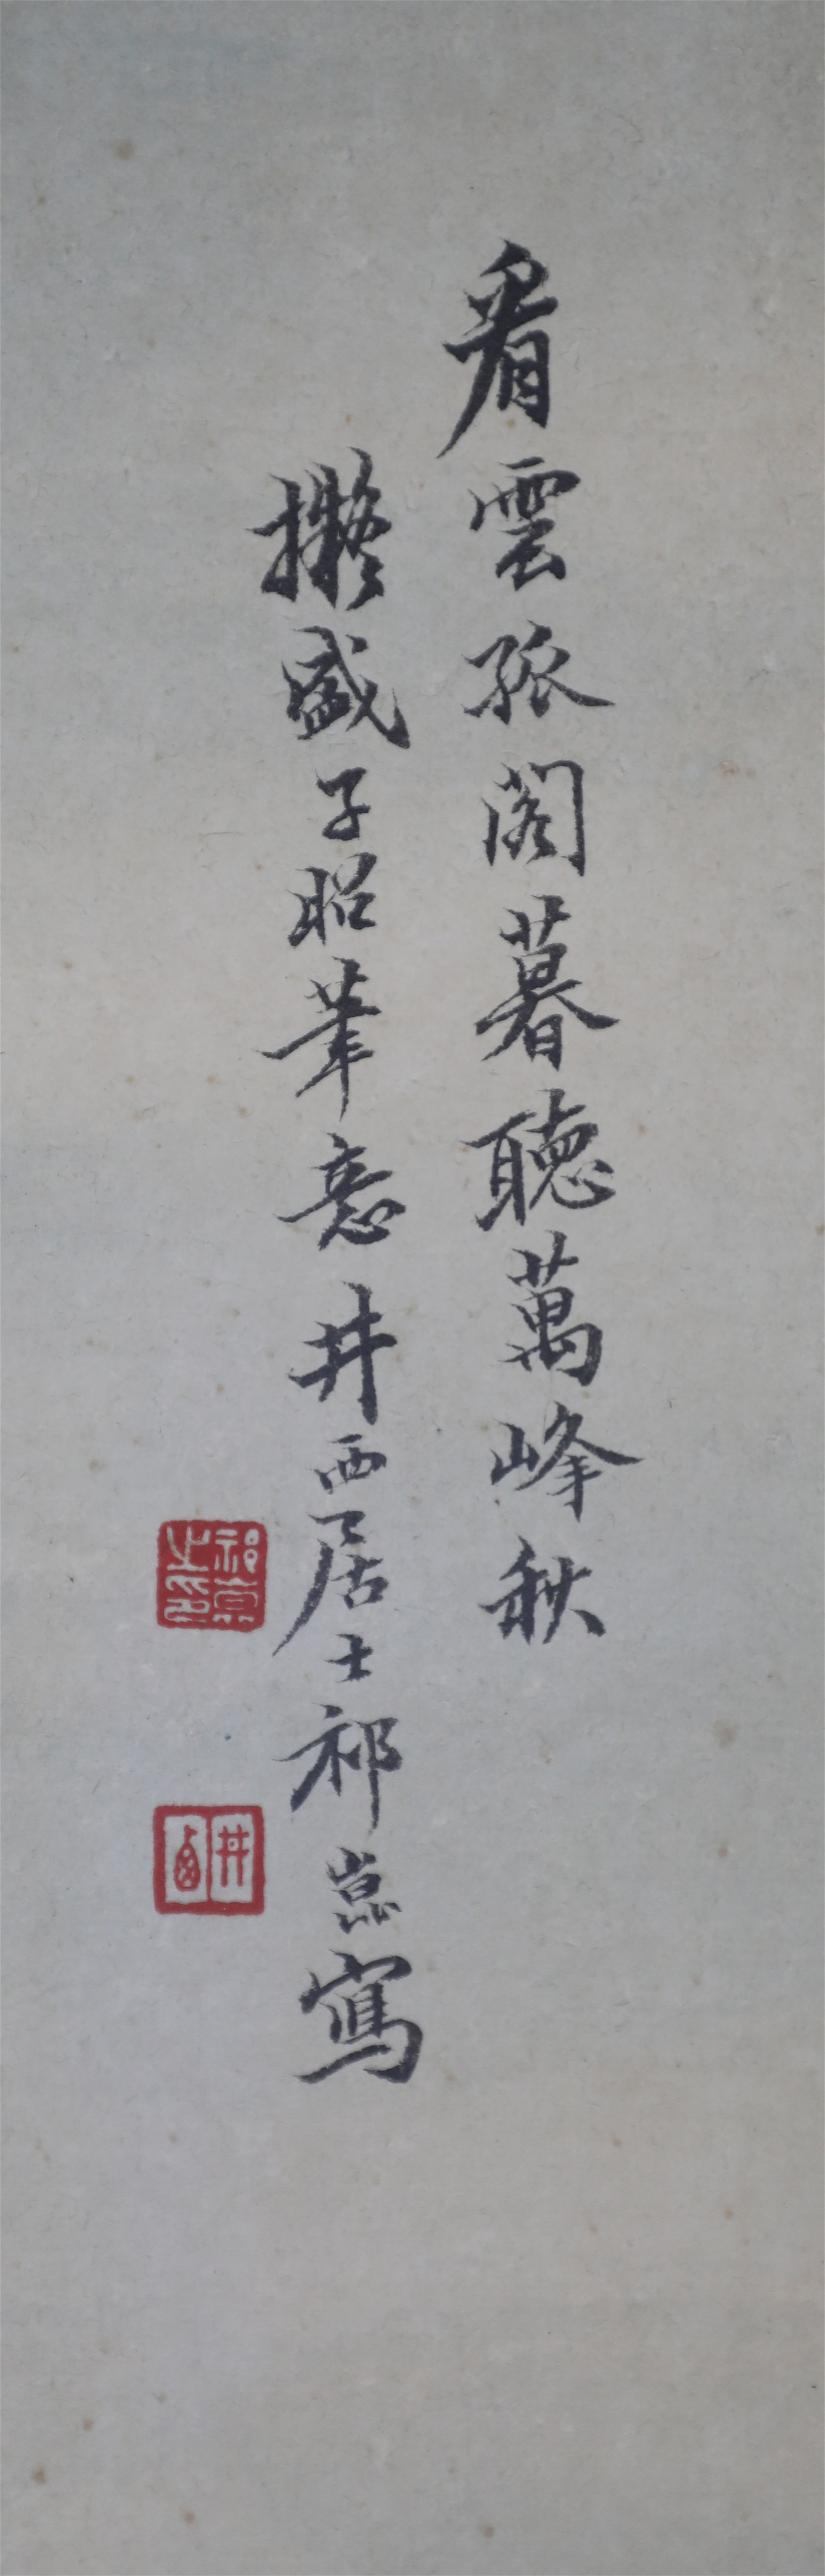 看雲孤閣暮聽萬峰秋
擬盛子昭筆意井西居士祁崑寫
祁崑之印
井西